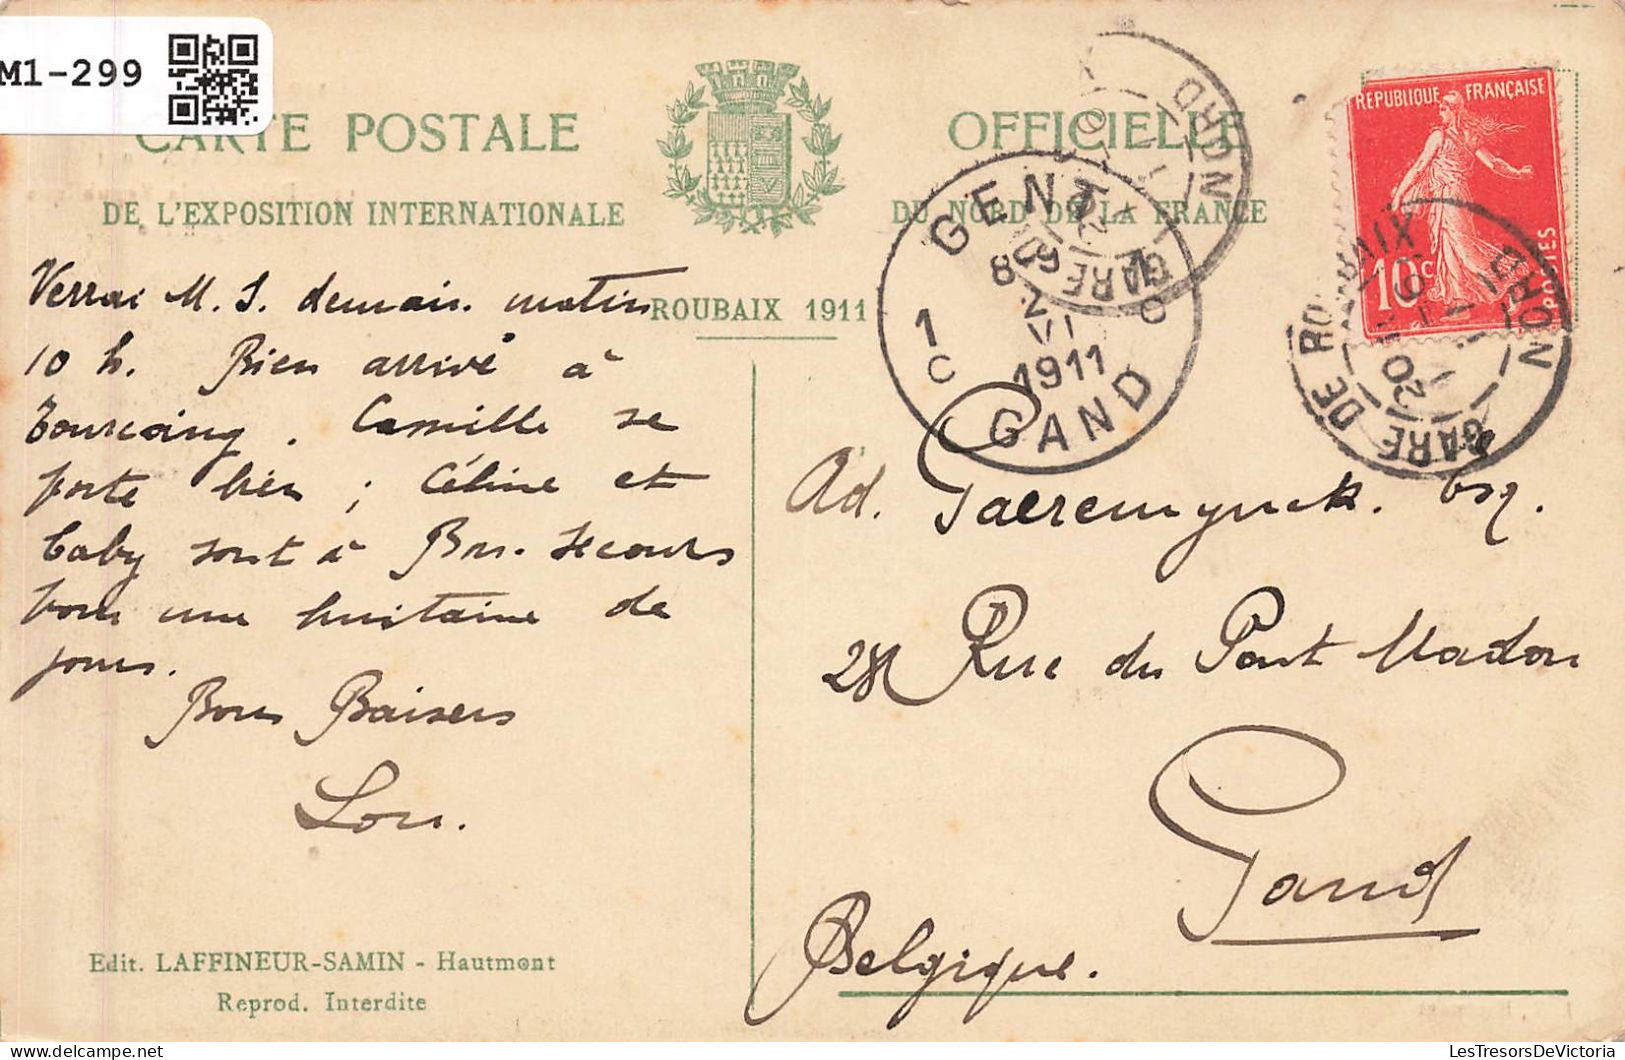 M1-299
CARTE POSTALE OFFICIELLE
DE L'EXPOSITION INTERNATIONALE DU NORD DE LA FRANCE
ROUBAIX 1911
REPUBLIQUE FRANÇAISE
10c
POSTES
GENT
1 C
8-9
2
VI
1911
GAND
GARE DE ROUBAIX
NORD
Verrai M. S. demain matin
10 h. Bien arrivé à
Tourcoing. Camille se
porte bien ; Céline et
baby sont à Bon-Secours
pour une huitaine de
jours.
Bons Baisers
Lou.
Ad. Gaeremynck. Esq.
28 Rue du Pont Madou
Gand
Belgique.
Edit. LAFFINEUR-SAMIN - Hautmont
Reprod. Interdite
LesTresorsDeVictoria
© delcampe.net